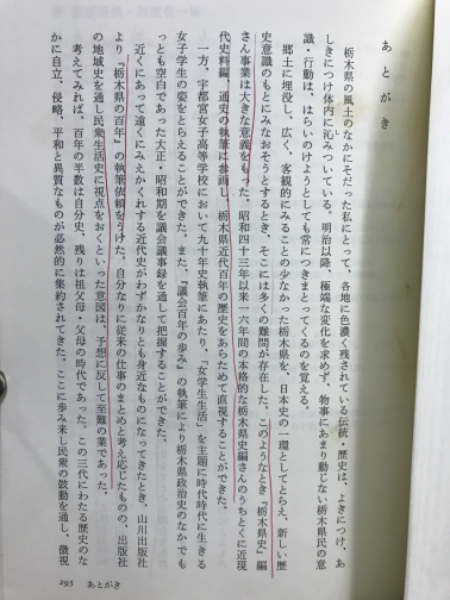 あとがき
栃木県の風土のなかにそだった私にとって、各地に色濃く残されている伝統・歴史は、よきにつけ、あ
しきにつけ体内に沁みついている。明治以降、極端な変化を求めず、物事にあまり動じない栃木県民の意
識・行動は、はらいのけようとしても常につきまとってくるのを覚える。
郷土に埋没し、広く、客観的にみることの少なかった栃木県を、日本史の一環としてとらえ、新しい歴
史意識のもとにみなおそうとするとき、そこには多くの難問が存在した。このようなとき『栃木県史』編
さん事業は大きな意義をもった。昭和四十三年以来一六年間の本格的な栃木県史編さんのうちとくに近現
代史料編、通史の執筆に参画し、栃木県近代百年の歴史をあらためて直視することができた。
一方、宇都宮女子高等学校において九十年史執筆にあたり、「女学生生活」を主題に時代時代に生きる
女子学生の姿をとらえることができた。また、『議会百年の歩み』の執筆により栃木県政治史のなかでも
っとも空白であった大正・昭和期を議会議事録を通して把握することができた。
近くにあって遠くにみえかくれする近代史がわずかなりとも身近なものになってきたとき、山川出版社
より『栃木県の百年』の執筆依頼をうけた。自分なりに従来の仕事のまとめと考え応じたものの、出版社
の地域史を通し民衆生活史に視点をおくといった意図は、予想に反して至難の業であった。
考えてみれば、百年の半数は自分史、残りは祖父母・父母の時代であった。この三代にわたる歴史のな
かに自立、侵略、平和と異質なものが必然的に集約されてきた。ここに歩み来し民衆の鼓動を通し、微視
293 あとがき